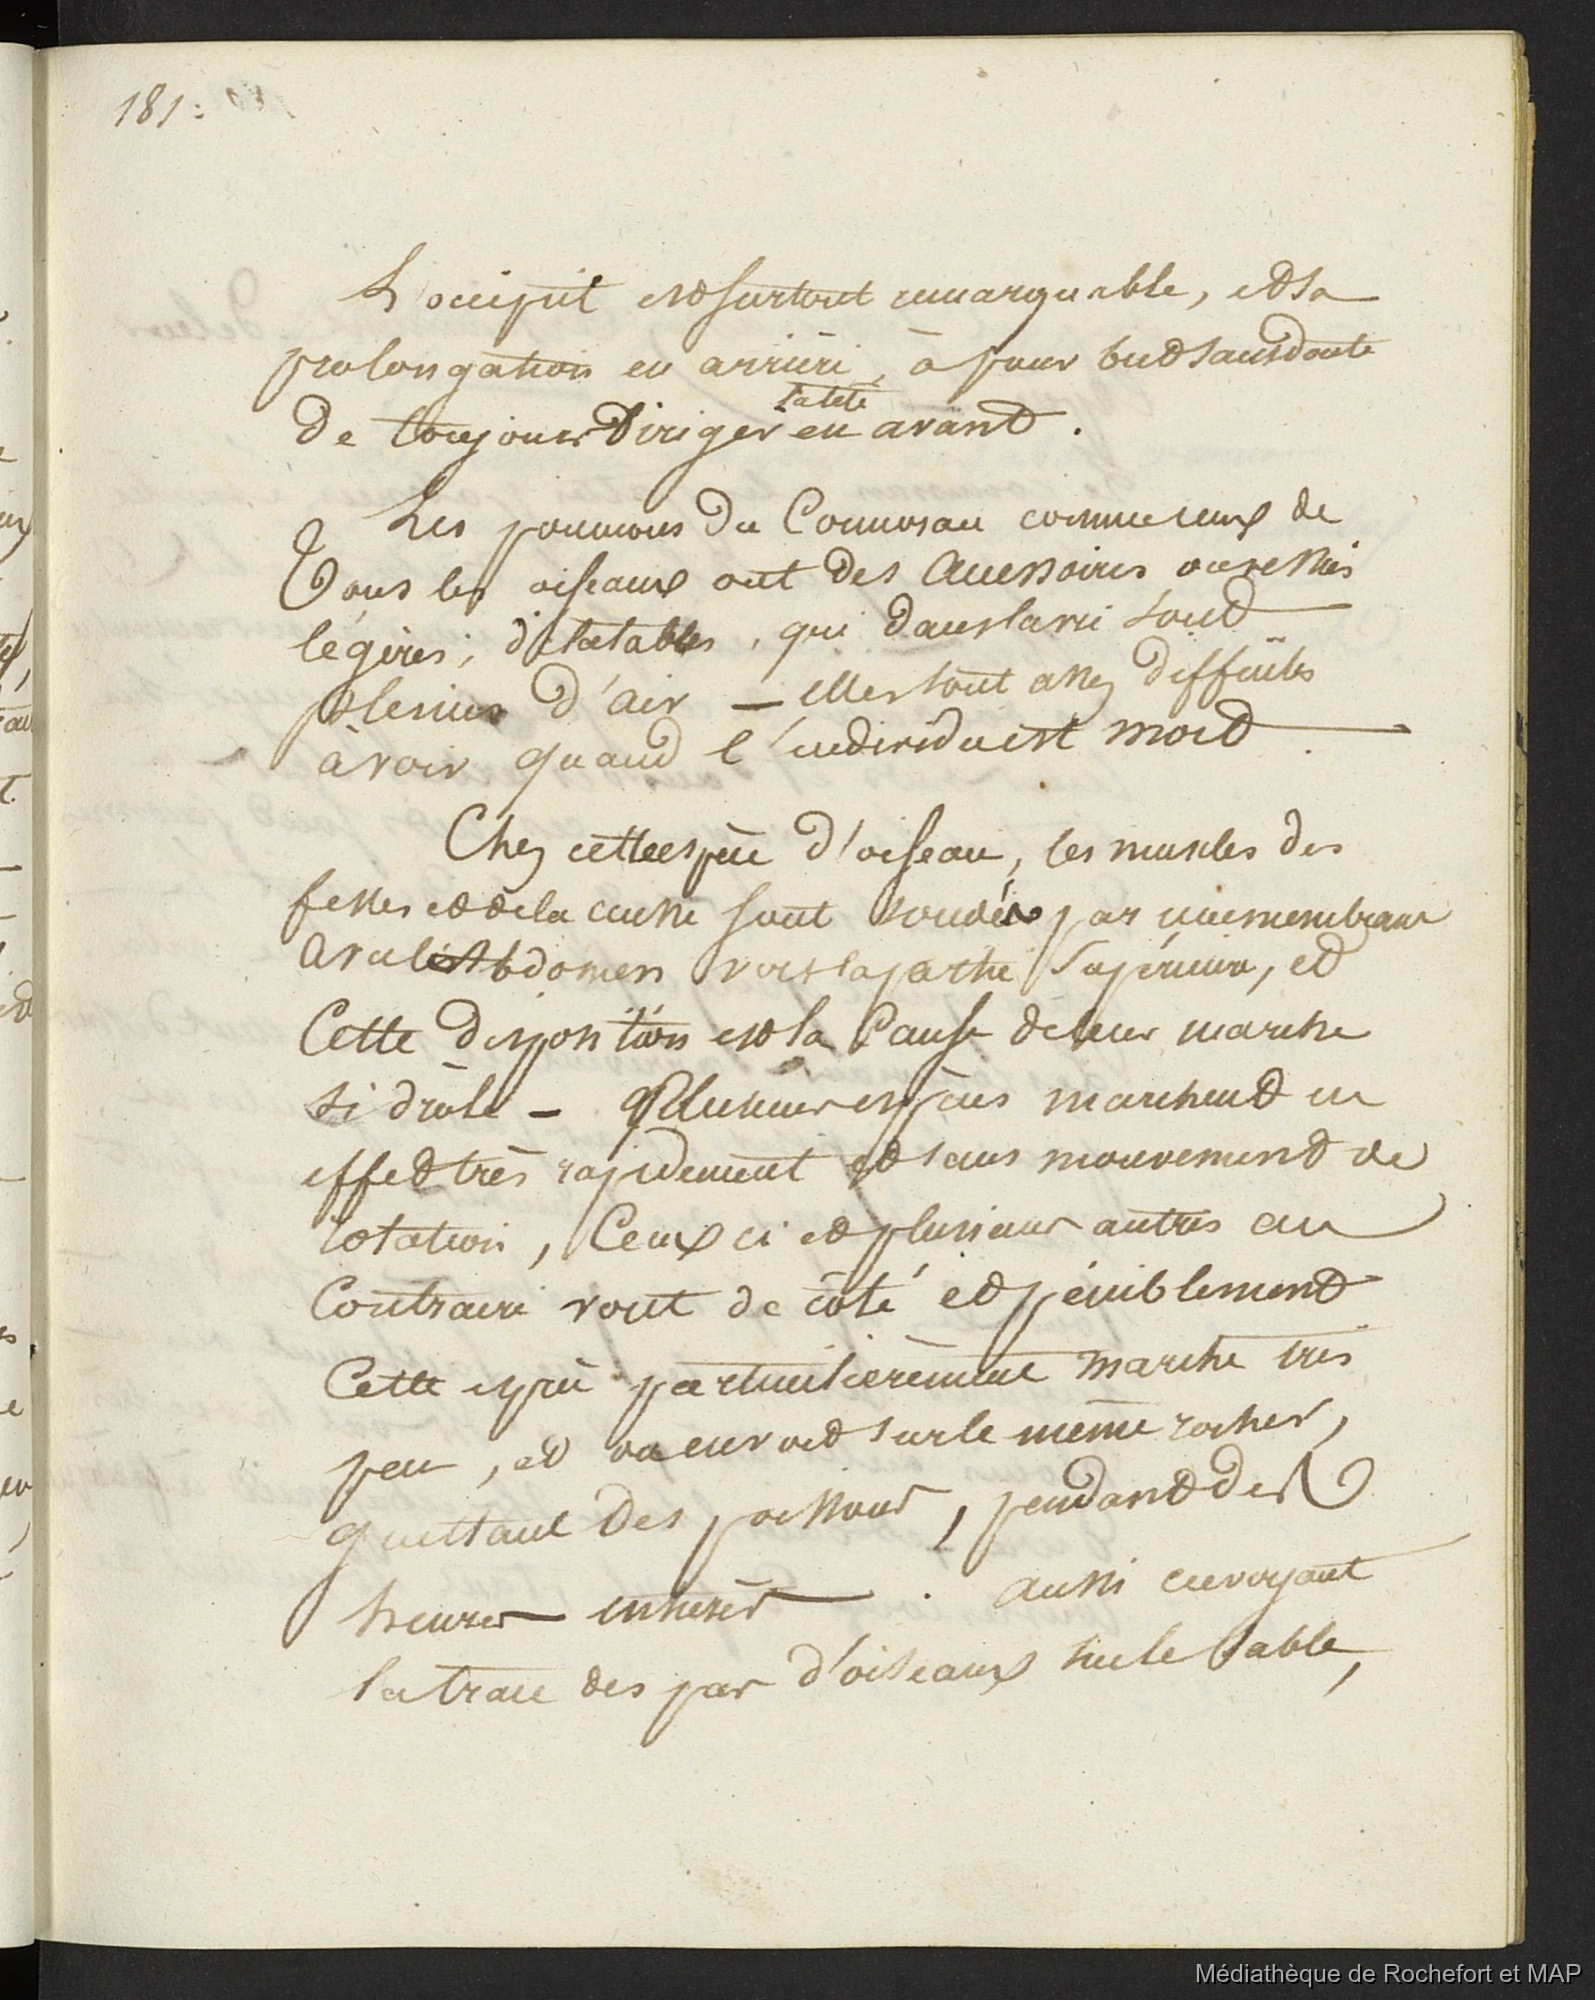 181:
L'occiput est surtout remarquable, et sa
prolongation en arrière, à pour but sans doute
de toujours Diriger la tête en avant.
Les poumons du Cormoran comme ceux de
Tous les oiseaux ont des accessoires ou vessies
légères, dilatables, qui dans la vie sont
pleines d'air — elles sont assez difficiles
à voir quand l'individu est mort.
Chez cette espèce d'oiseau, les muscles des
fesses et de la cuisse sont soudés par une membrane
avec l'Abdomen vers la partie supérieure, et
Cette disposition est la Cause de leur marche
si drôle — Plusieurs espèces marchent en
effet très rapidement et sans mouvement de
rotation, Ceux ci et plusieurs autres au
Contraire vont de côté et péniblement
Cette espèce particulièrement marche très
peu, et on en voit sur le même rocher,
guettant des poissons, pendant des
heures entières. aussi en voyant
la trace des pas d'oiseaux sur le Sable,
Médiathèque de Rochefort et MAP